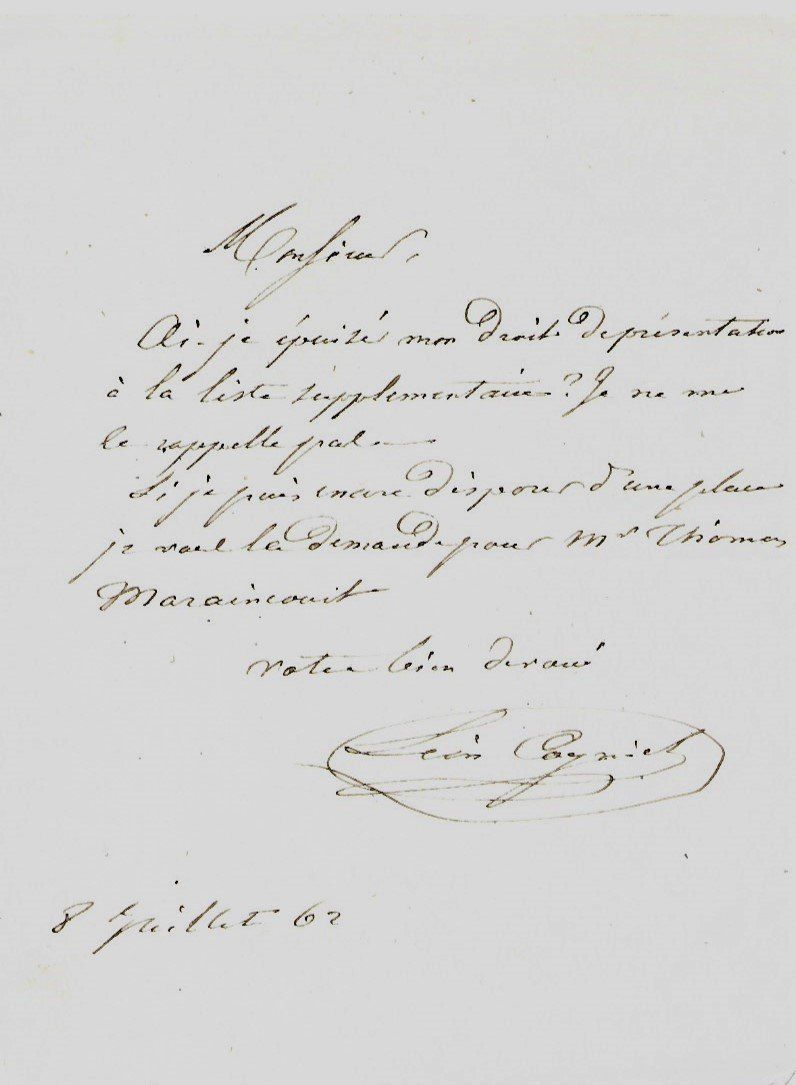 Monsieur,
Ai-je épuisé mon droit de présentation
à la liste supplementaire? Je ne me
le rappelle pas.
Si je puis encore disposer d'une place
je vous la demande pour Mr Thomas
Maraincourt
votre bien devoué
Léon Cogniet
8 Juillet 62